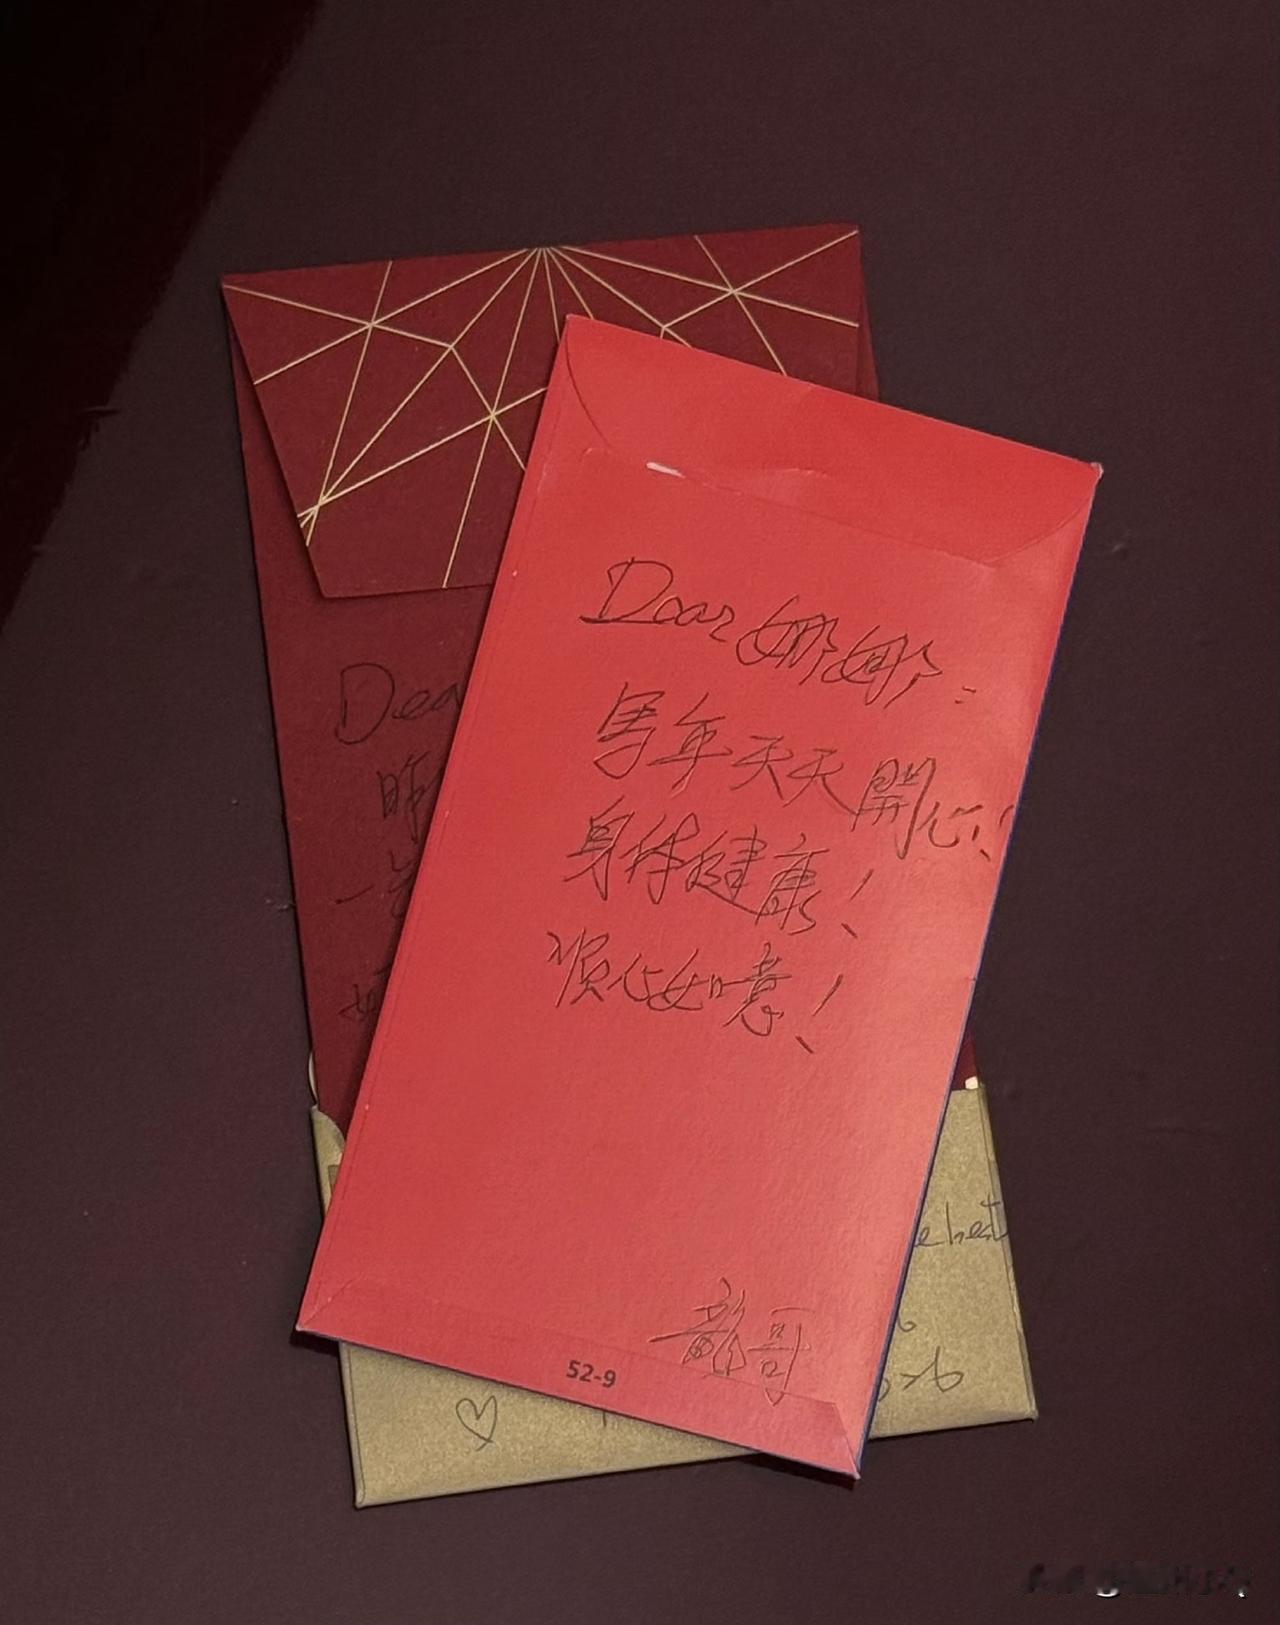 Dear 娜娜：
馬年天天開心！
身体健康！
順心如意！
龍哥
52-9
Dear
昨
一